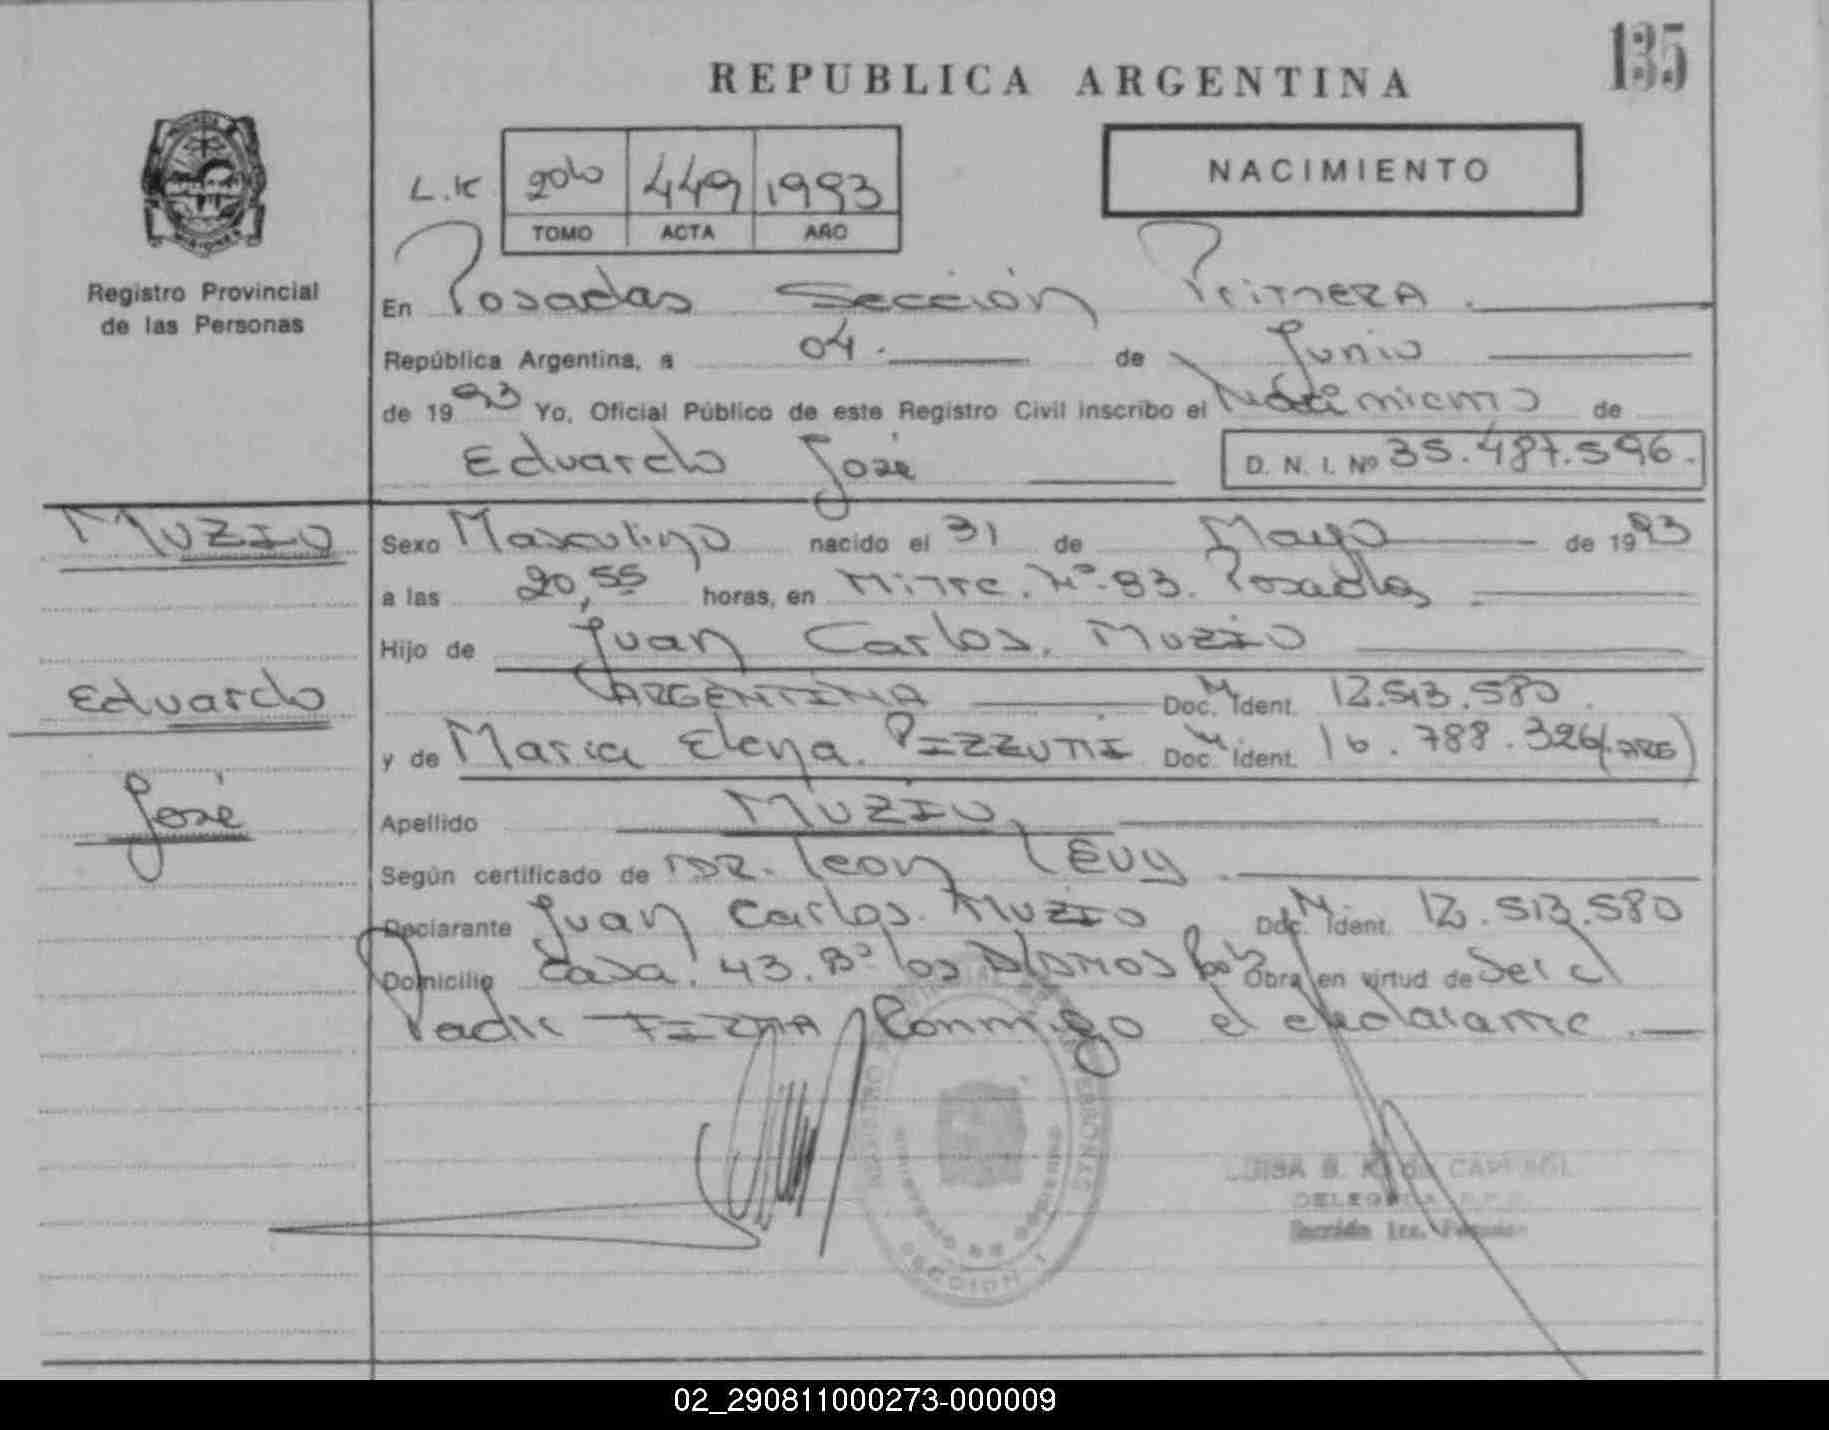 135
REPUBLICA ARGENTINA
NACIMIENTO
L.K 20to 449 1993
TOMO ACTA AÑO
Registro Provincial
de las Personas
En Posadas Sección Primera.
República Argentina, a 04. de Junio
de 1993 Yo, Oficial Público de este Registro Civil inscribo el Nacimiento de
Eduardo José D. N. I. Nº 35.487.596.
MUZIO
Eduardo
José
Sexo Masculino nacido el 31 de Mayo de 1993
a las 20,55 horas, en Mitre. Nº. 83. Posadas
Hijo de Juan Carlos. MUZIO
ARGENTINA Doc. M Ident. 12.513.580.
y de Maria Elena. PIZZUTTI Doc. M Ident. 16.788.326(ARG)
Apellido MUZIO
Según certificado de DR. Leon Levy
Declarante Juan Carlos. MUZIO Doc. M Ident. 12.513.580
Domicilio Casa. 43. Bº los Alamos Obra en virtud de Ser el
Padre FIRMA Conmigo el declarante.
MINISTERIO DE GOBIERNO
SECCION 1
DELEGADA
Sección 1ra.
02_290811000273-000009